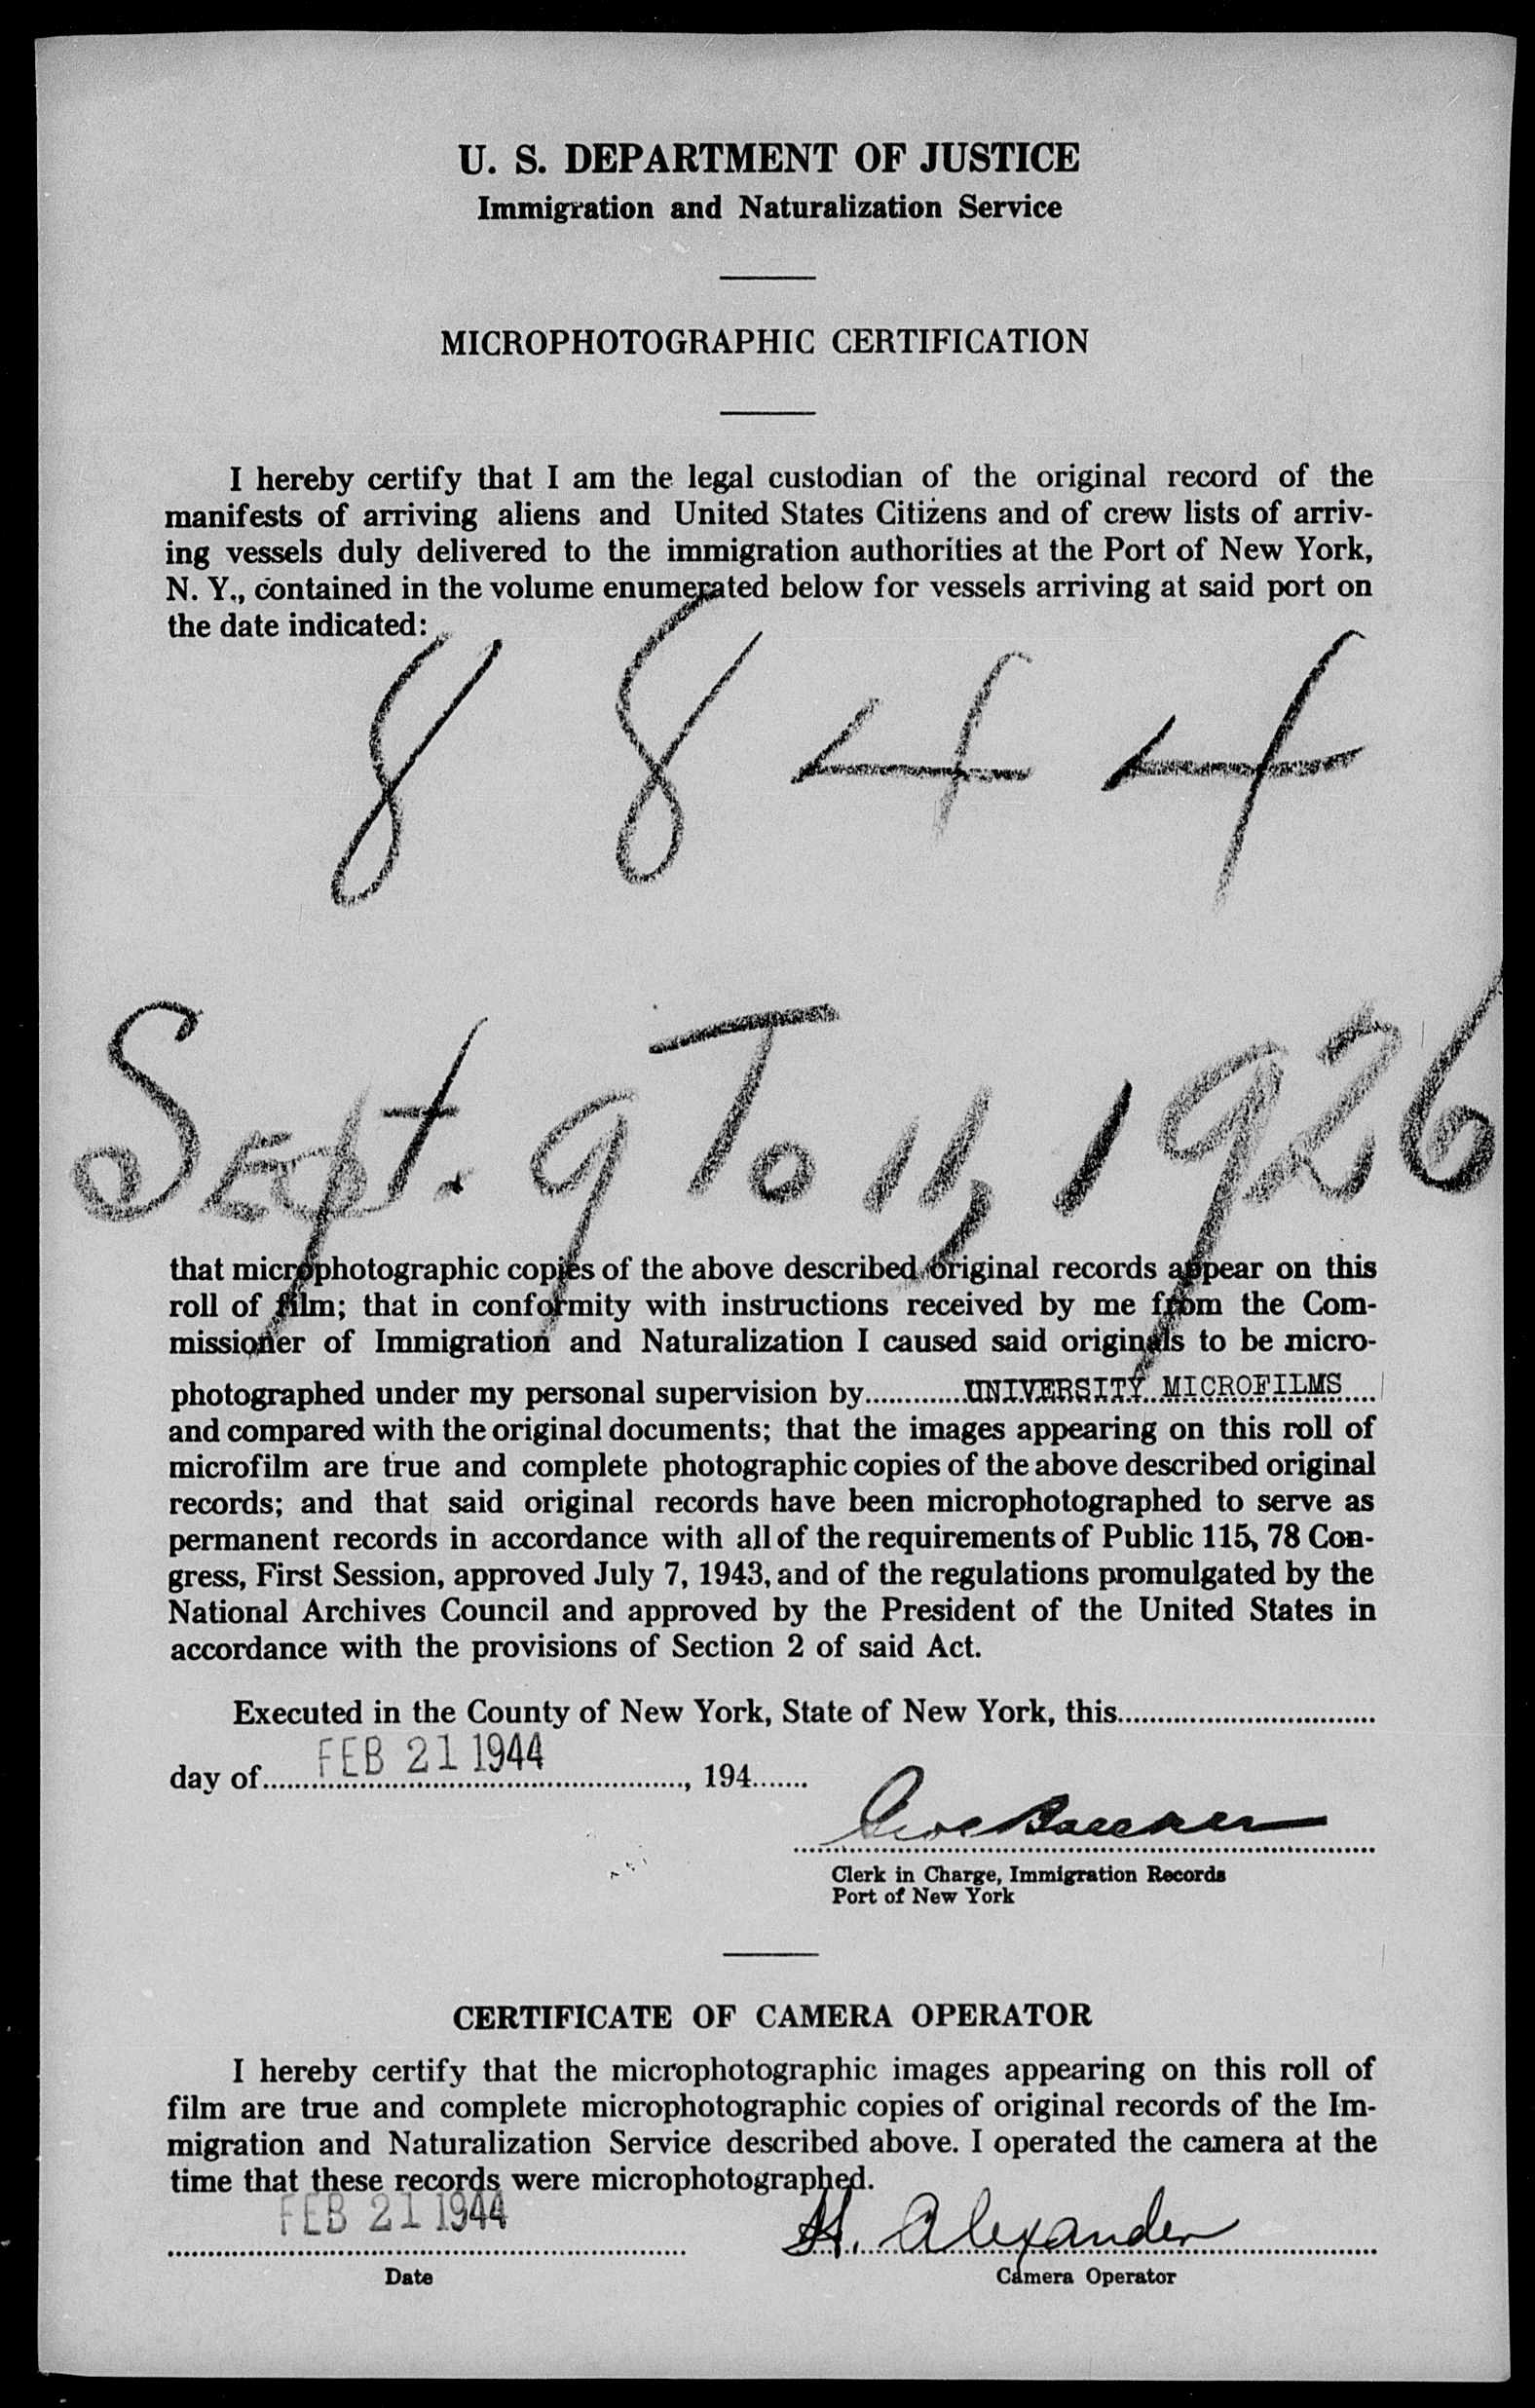 U. S. DEPARTMENT OF JUSTICE
Immigration and Naturalization Service
MICROPHOTOGRAPHIC CERTIFICATION
I hereby certify that I am the legal custodian of the original record of the
manifests of arriving aliens and United States Citizens and of crew lists of arriv-
ing vessels duly delivered to the immigration authorities at the Port of New York,
N. Y., contained in the volume enumerated below for vessels arriving at said port on
the date indicated:
8844
Sept. 9 To 11, 1926
that microphotographic copies of the above described original records appear on this
roll of film; that in conformity with instructions received by me from the Com-
missioner of Immigration and Naturalization I caused said originals to be micro-
photographed under my personal supervision by............UNIVERSITY MICROFILMS....
and compared with the original documents; that the images appearing on this roll of
microfilm are true and complete photographic copies of the above described original
records; and that said original records have been microphotographed to serve as
permanent records in accordance with all of the requirements of Public 115, 78 Con-
gress, First Session, approved July 7, 1943, and of the regulations promulgated by the
National Archives Council and approved by the President of the United States in
accordance with the provisions of Section 2 of said Act.
Executed in the County of New York, State of New York, this................................
day of..... FEB 21 1944 ................, 194.......
Clerk in Charge, Immigration Records
Port of New York
CERTIFICATE OF CAMERA OPERATOR
I hereby certify that the microphotographic images appearing on this roll of
film are true and complete microphotographic copies of original records of the Im-
migration and Naturalization Service described above. I operated the camera at the
time that these records were microphotographed.
FEB 21 1944 H. Alexander
Date Camera Operator